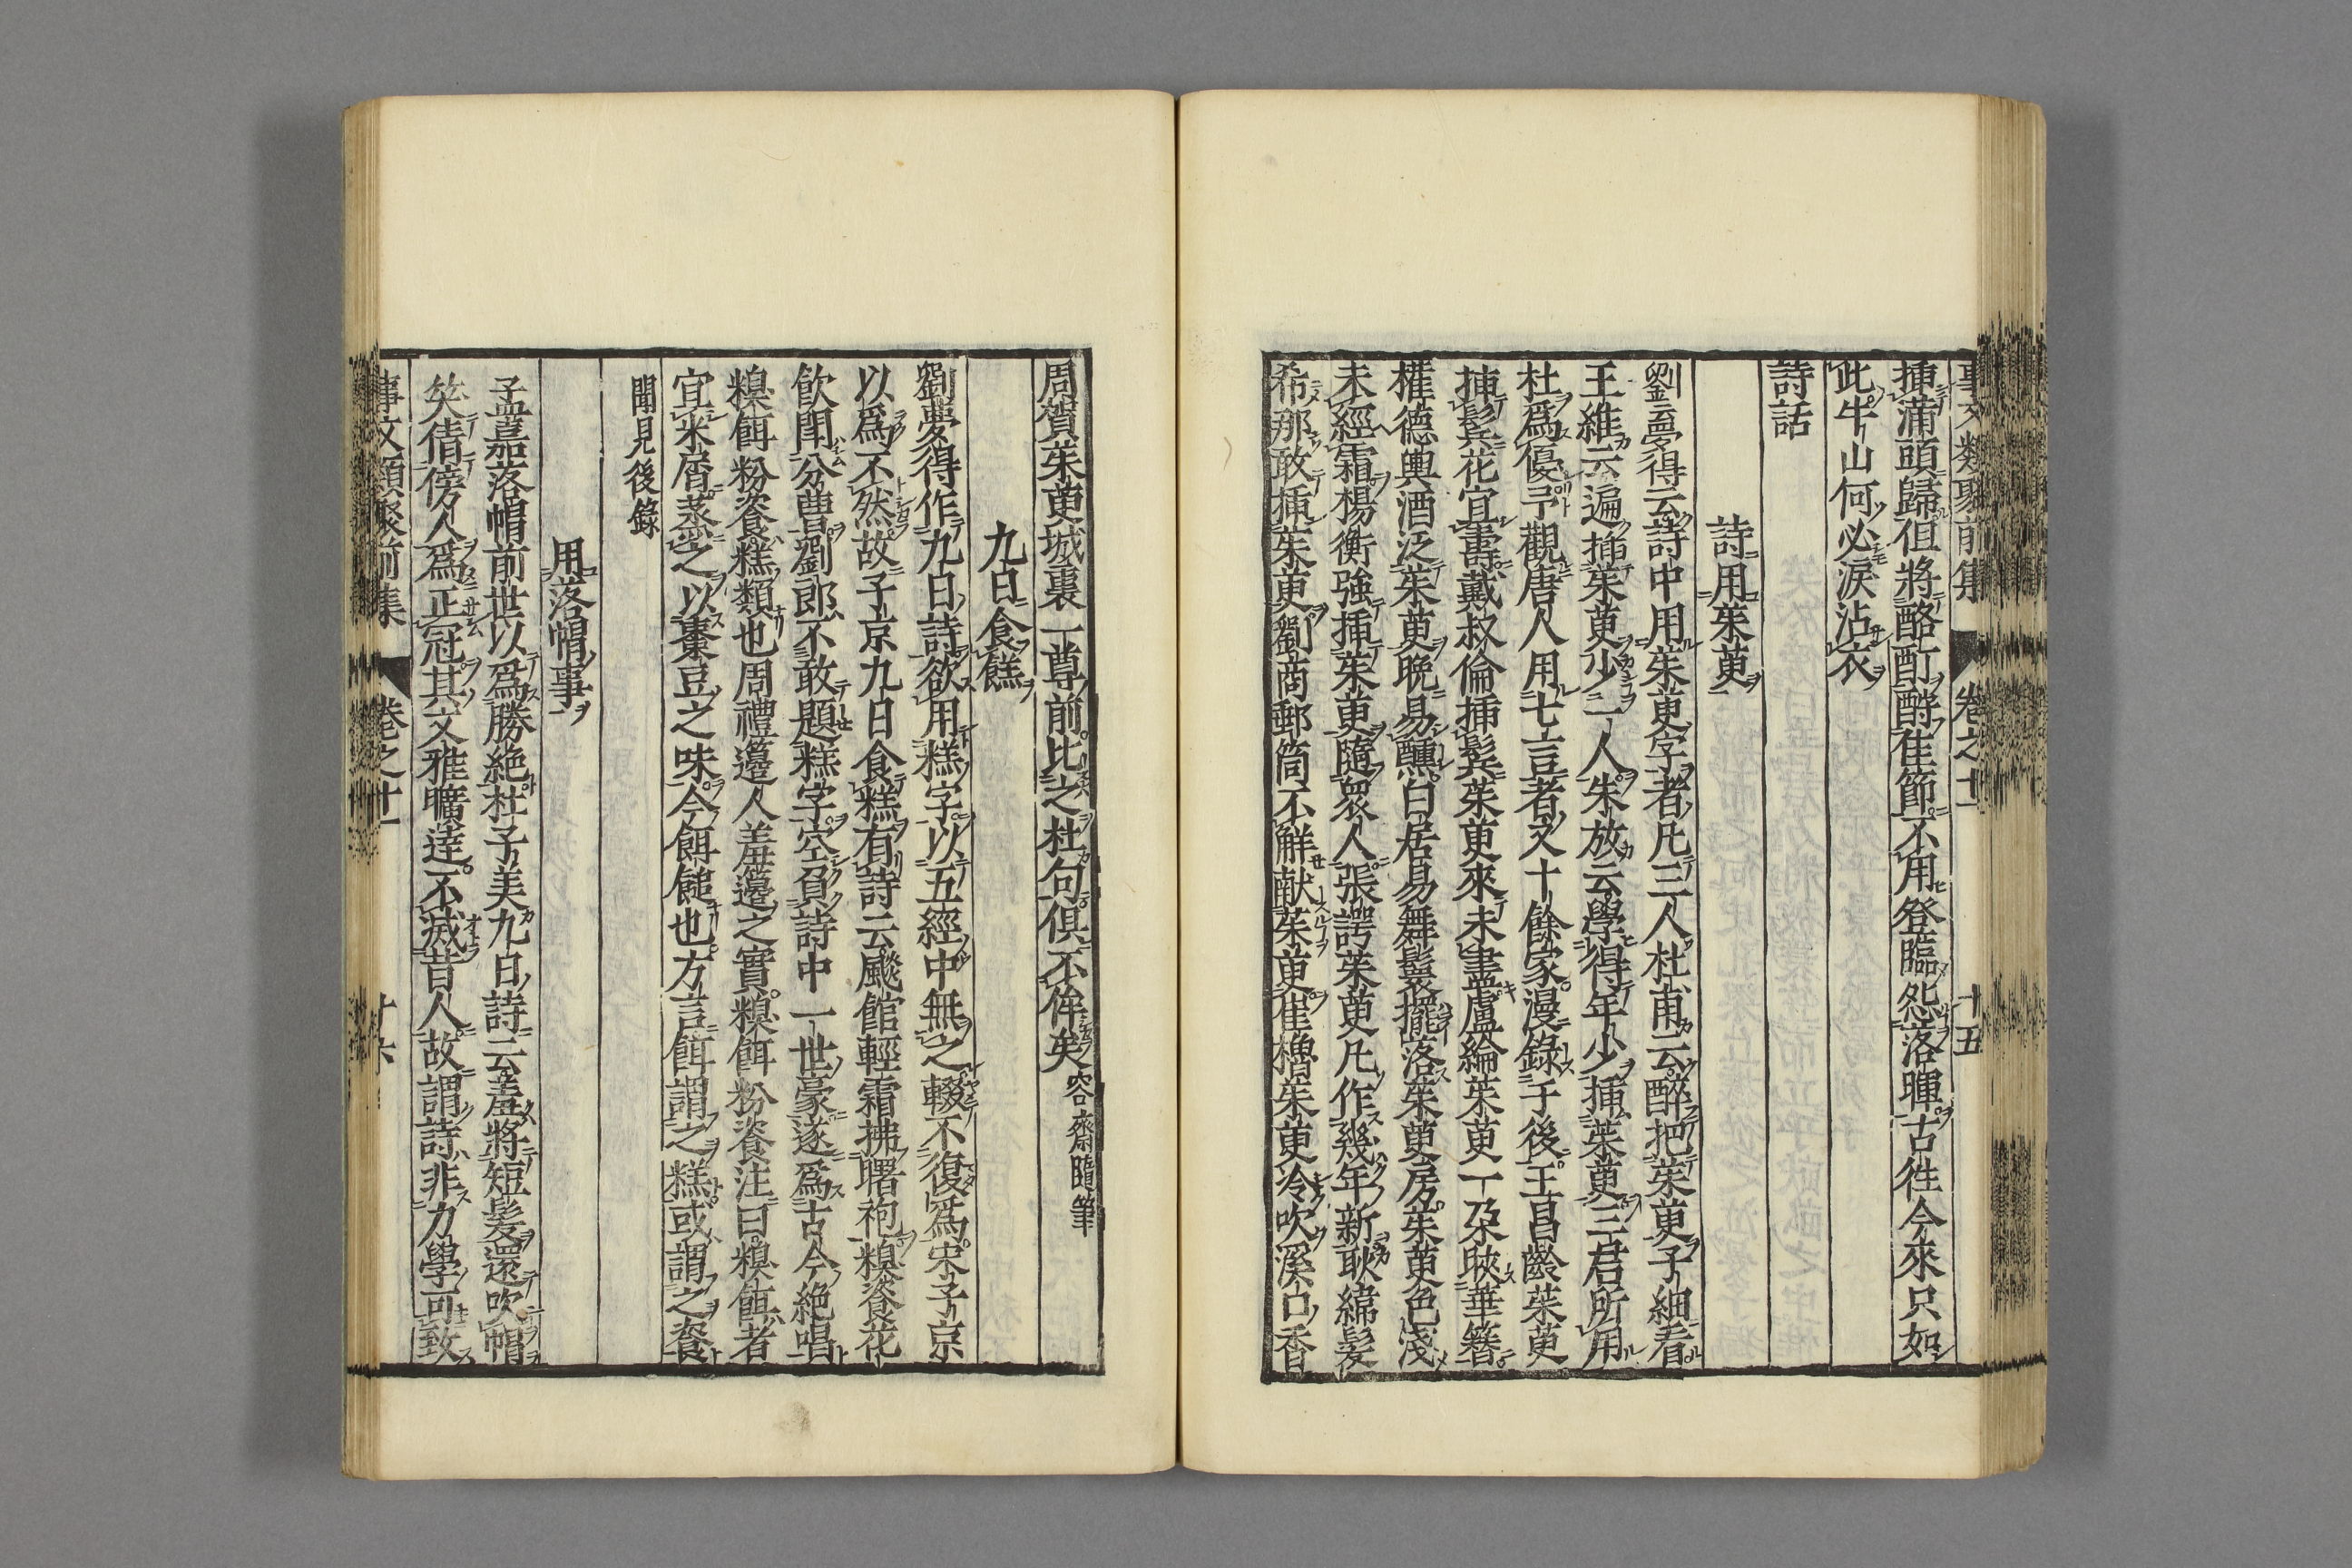 事文類聚前集 卷之十一 十五
插蒲頭歸但將酩酊酧佳節不用登臨怨落暉古往今來只如
此牛山何必淚沾衣
詩話
詩用茱萸
劉夢得云詩中用茱萸字者凡三人杜甫云醉把茱萸子細看
王維云遍插茱萸少一人朱放云學得年少插茱萸三君所用
杜爲優予觀唐人用七言者又十餘家漫錄于後王昌齡茱萸
插鬢花宜壽戴叔倫插鬢茱萸來未盡盧綸茱萸一朶暎華簪
權德輿酒泛茱萸晩易醺白居易舞鬟擺落茱萸房茱萸色淺
未經霜楊衡強插茱萸隨衆人張諤茱萸凡作幾年新耿緯髮
希那敢插茱萸劉商郵筒不解献茱萸崔櫓茱萸冷吹溪口香
周賀茱萸城裏一尊前比之杜句俱不侔矣 容齋隨筆
九日食餻
劉夢得作九日詩欲用糕字以五經中無之輟不復爲宋子京
以爲不然故子京九日食糕有詩云飈館輕霜拂曙袍糗餈花
飲鬪分曹劉郎不敢題糕字空負詩中一世豪遂爲古今絶唱
糗餌粉餈糕類也周禮籩人羞籩之實糗餌粉餈注曰糗餌者
宜米屑蒸之以棗豆之味今餌䭔也方言餌謂之糕或謂之餈
聞見後錄
用落帽事
孟嘉落帽前世以爲勝絶杜子美九日詩云羞將短髮還吹帽
笑倩傍人爲正冠其文雅曠達不减昔人故謂詩非力學可致
事文類聚前集 卷之十一 十六